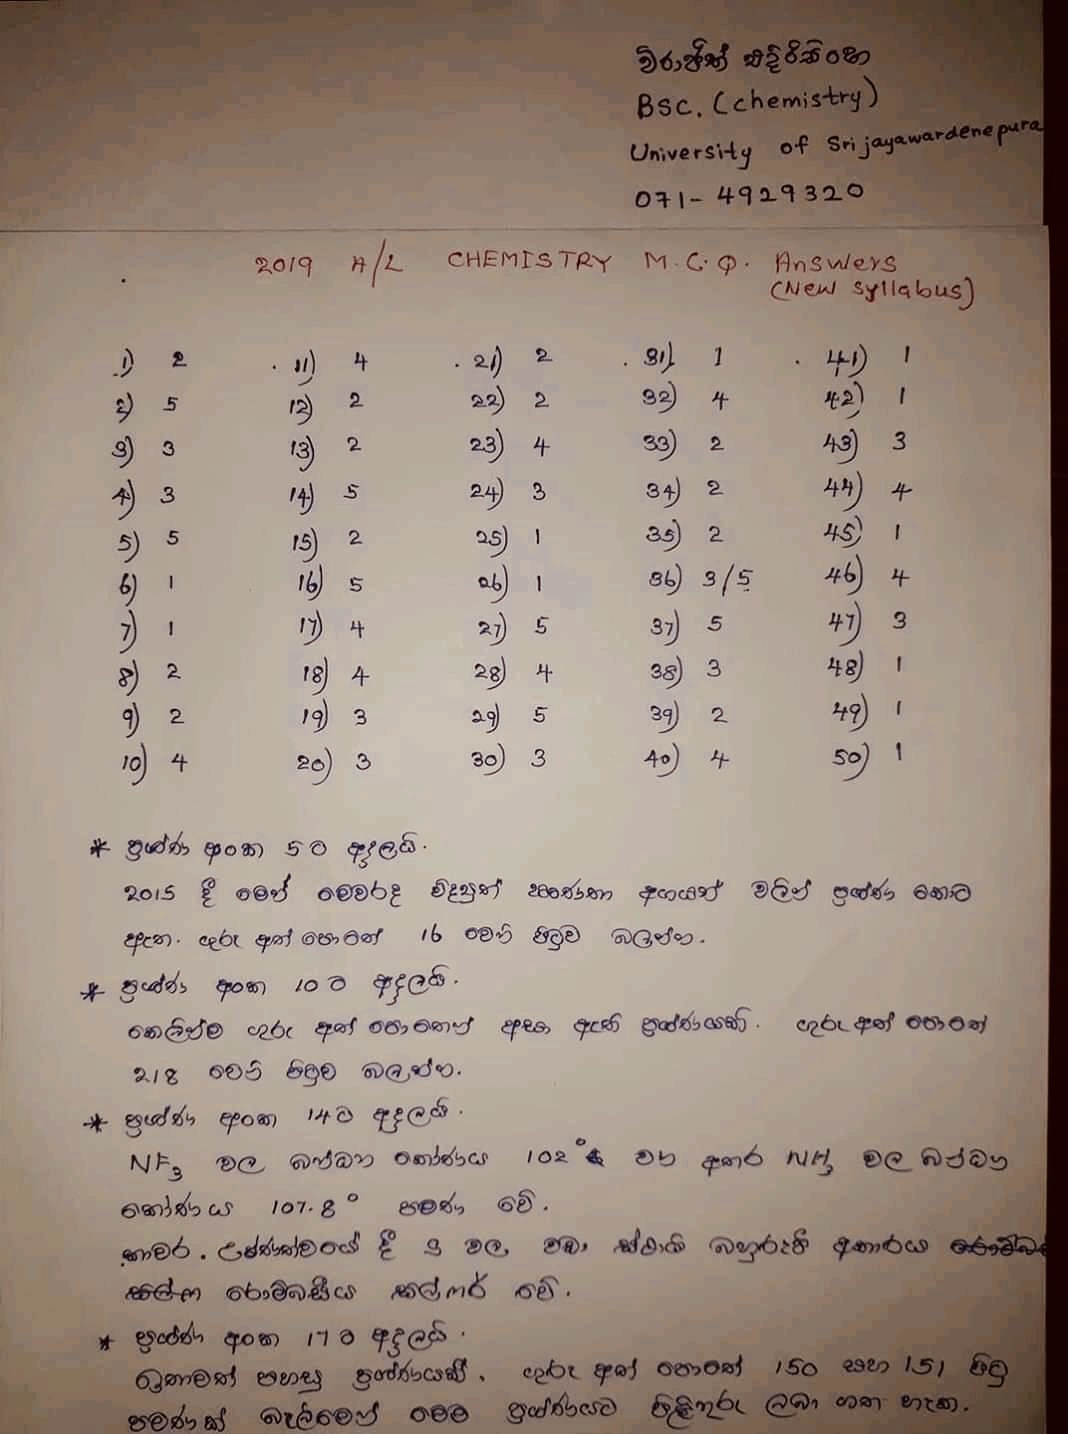 විරාජිත් එදිරිසිංහ
BSC. (chemistry)
University of Sri jayawardenepura
071-4929320
2019 A/L CHEMISTRY M.C.Q. Answers
(New syllabus)
1) 2 11) 4 21) 2 31) 1 41) 1
2) 5 12) 2 22) 2 32) 4 42) 1
3) 3 13) 2 23) 4 33) 2 43) 3
4) 3 14) 5 24) 3 34) 2 44) 4
5) 5 15) 2 25) 1 35) 2 45) 1
6) 1 16) 5 26) 1 36) 3/5 46) 4
7) 1 17) 4 27) 5 37) 5 47) 3
8) 2 18) 4 28) 4 38) 3 48) 1
9) 2 19) 3 29) 5 39) 2 49) 1
10) 4 20) 3 30) 3 40) 4 50) 1
* ප්‍රශ්ණ අංක 5ට අදාලයි.
2015 දී මෙන් මෙවරද විද්‍යුත් ඍණතා අගයන් වලින් ප්‍රශ්ණ කොට
ඇත. ගුරු අත් පොතේ 16 වෙනි පිටුව බලන්න.
* ප්‍රශ්ණ අංක 10ට අදාලයි.
කෙලින්ම ගුරු අත් පොතෙන් අසා ඇති ප්‍රශ්ණයකි. ගුරු අත් පොතේ
218 වෙනි පිටුව බලන්න.
* ප්‍රශ්ණ අංක 14ට අදාලයි.
NF3 වල බන්ධන කෝණය 102° වන අතර NH3 වල බන්ධන
කෝණය 107.8° පමණ වේ.
කාමර උෂ්ණත්වයේ දී S වල වඩා ස්ථායි බහුරූපී ආකාරය
රොම්බසීය සල්ෆර් වේ.
* ප්‍රශ්ණ අංක 17ට අදාලයි.
ඉතාමත් පහසු ප්‍රශ්ණයකි. ගුරු අත් පොතේ 150 සහ 151 පිටු
පමණක් බැලීමෙන් මෙම ප්‍රශ්ණයට පිළිතුරු ලබා ගත හැක.